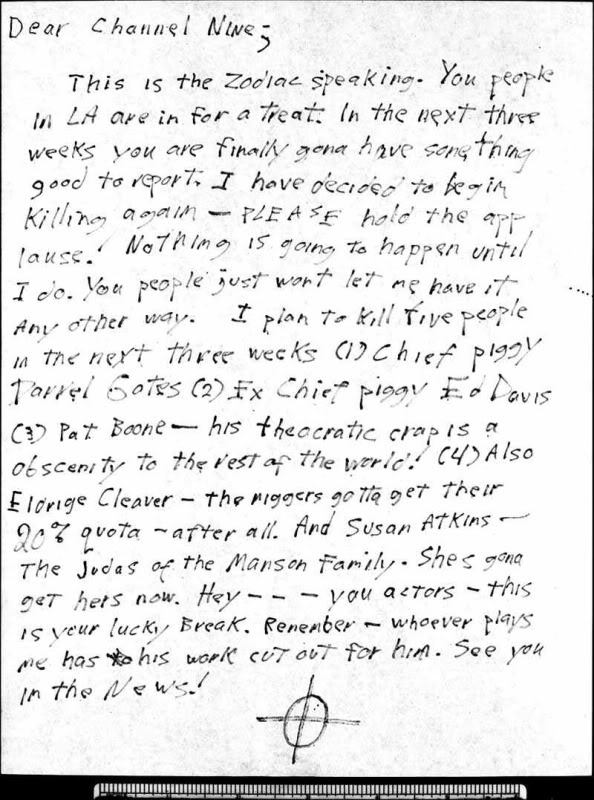 Dear Channel Nine;
This is the Zodiac speaking. You people
in LA are in for a treat. In the next three
weeks you are finally gona have something
good to report. I have decided to begin
killing again - PLEASE hold the app
lause! Nothing is going to happen until
I do. You people just wont let me have it
any other way. I plan to kill five people
in the next three weeks (1) Chief piggy
Darrel Gates (2) Ex Chief piggy Ed Davis
(3) Pat Boone - his theocratic crap is a
obscenity to the rest of the world! (4) Also
Eldrige Cleaver - the niggers gotta get their
20% quota - after all. And Susan Atkins -
The Judas of the Manson Family. Shes gona
get hers now. Hey - - - you actors - this
is your lucky Break. Remember - whoever plays
me has his work cut out for him. See you
in the News!